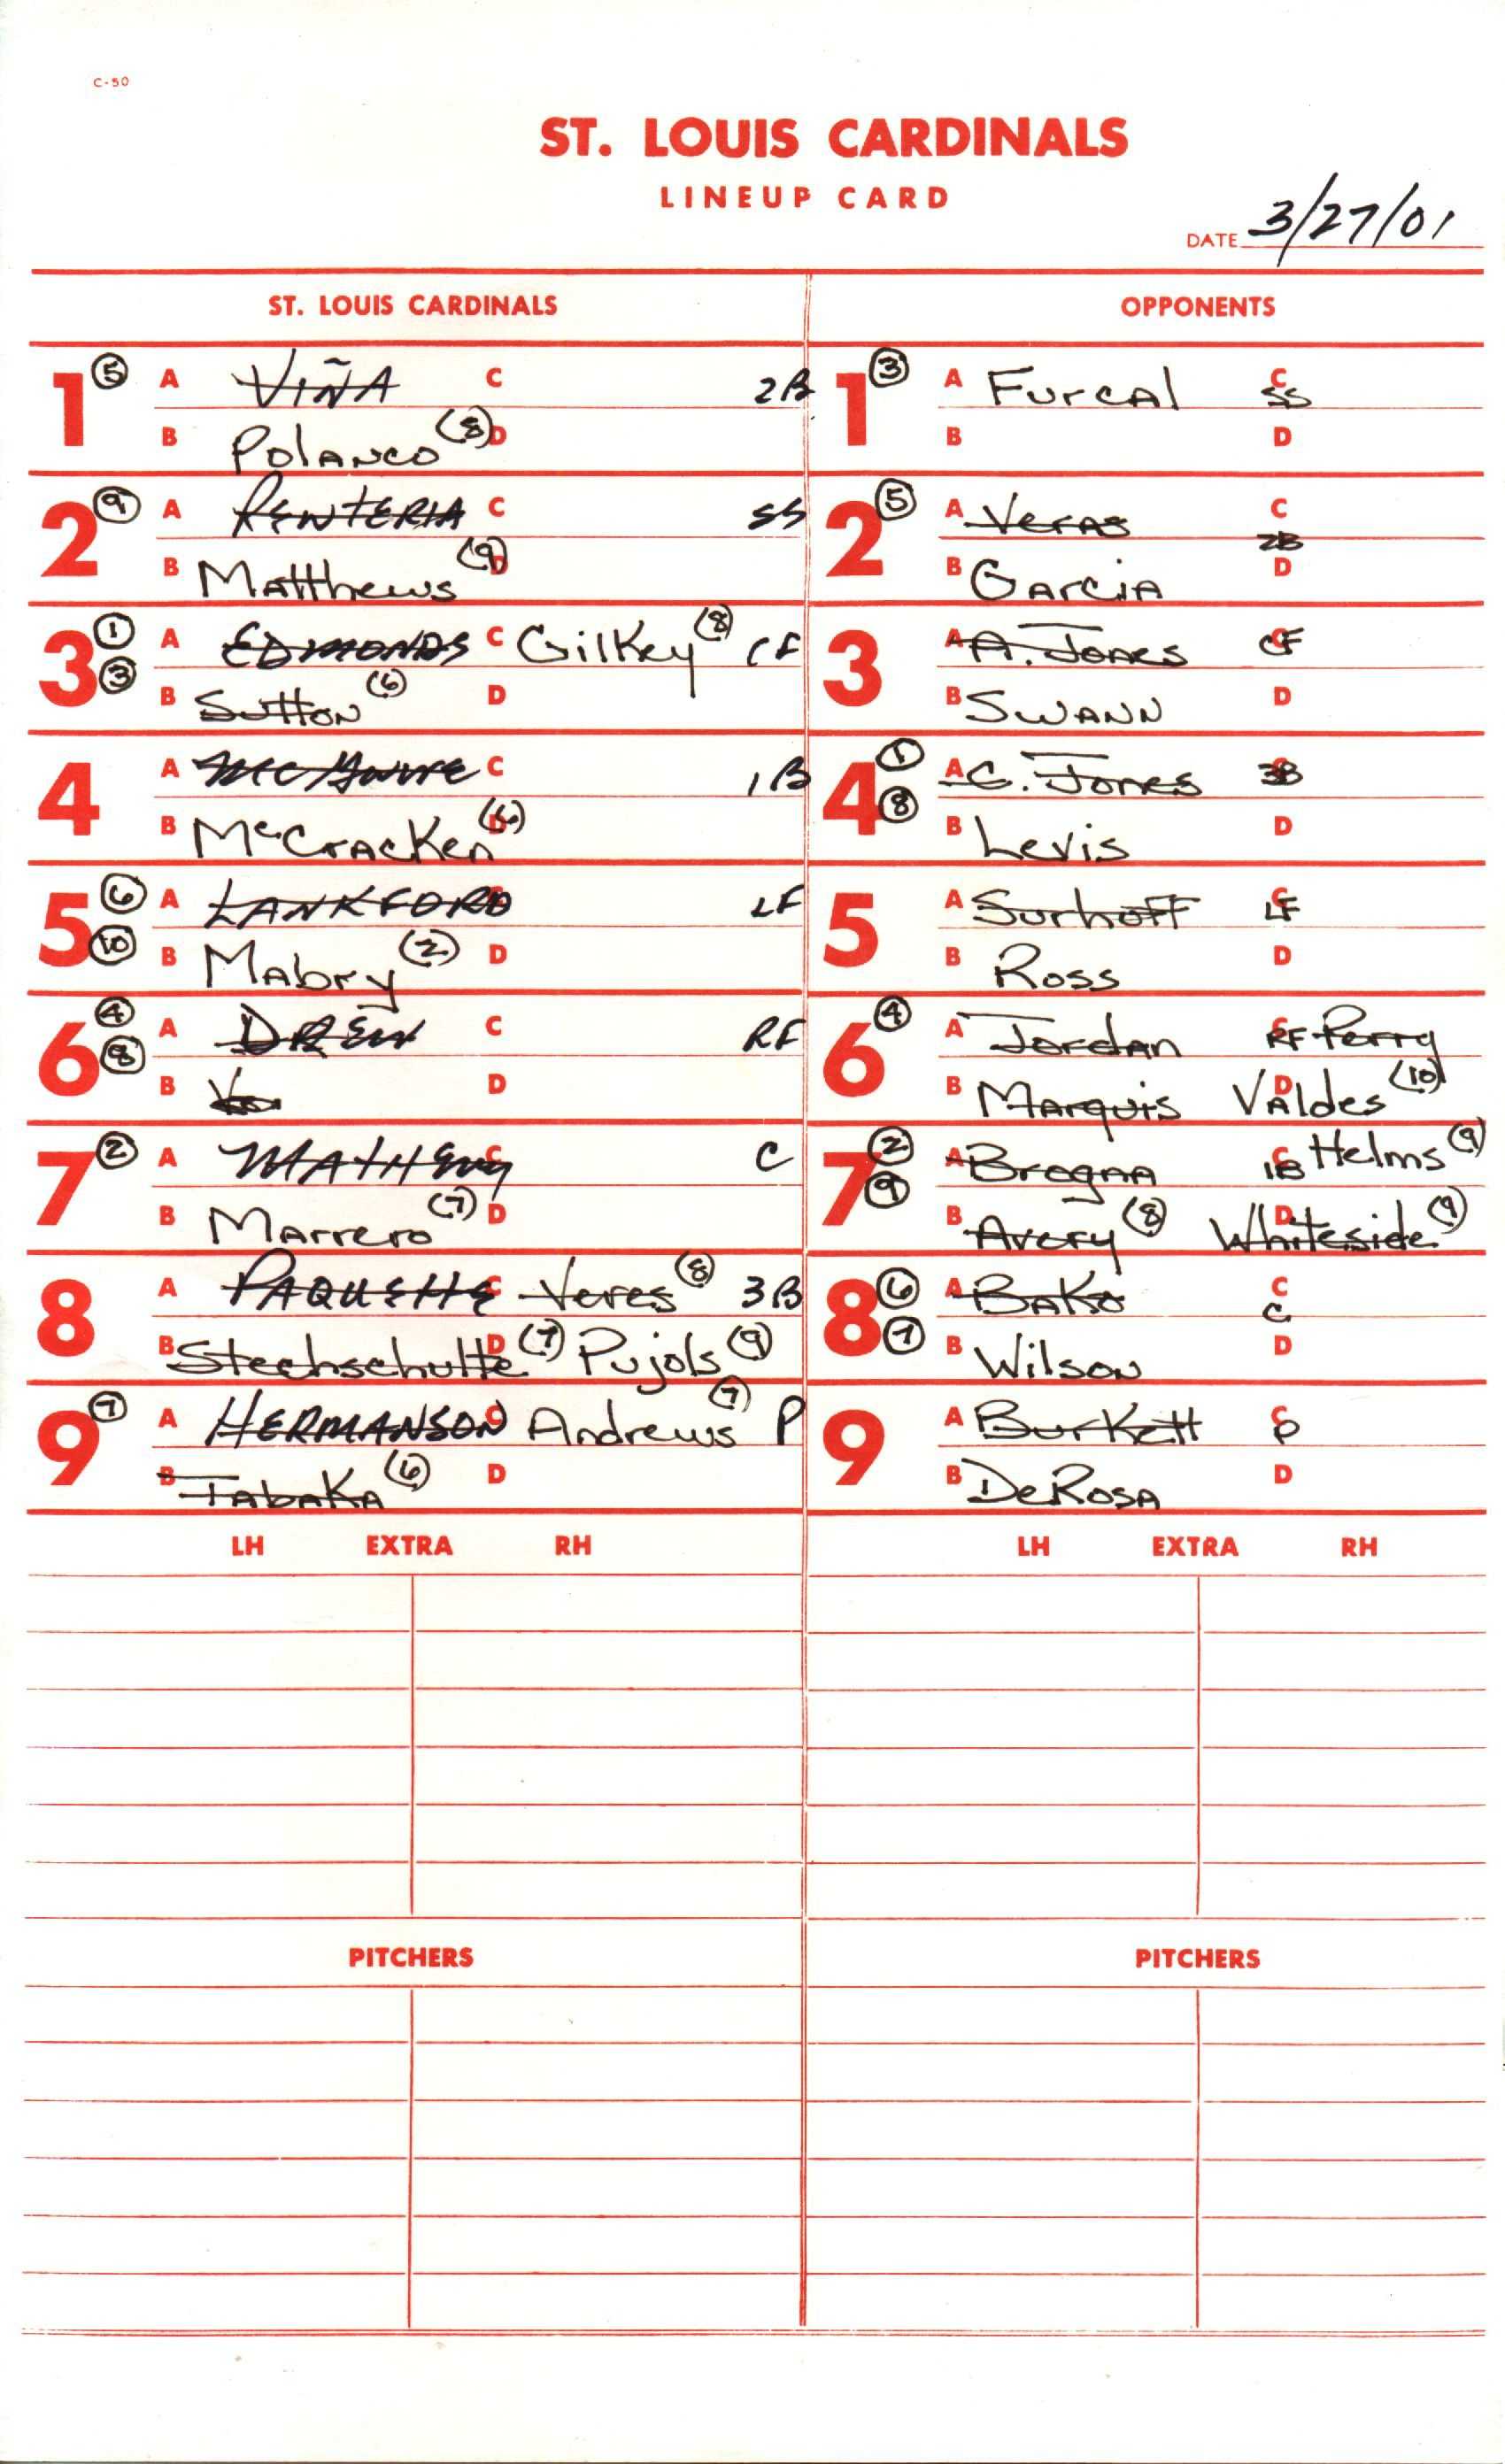 C-50
ST. LOUIS CARDINALS
LINEUP CARD
DATE 3/27/01
ST. LOUIS CARDINALS
1 ⑤ A VIÑA C 2B
B Polanco (8) D
2 ⑨ A RENTERIA C SS
B Matthews (9) D
3 ① A EDMONDS C Gilkey (8) CF
③ B Sutton (6) D
4 A McGwire C 1B
B McCracken (6) D
5 ⑥ A LANKFORD C LF
⑩ B Mabry (2) D
6 ④ A DREW C RF
⑧ B D
7 ② A MATHENY C C
B Marrero (7) D
8 A PAQUETTE C Veres (8) 3B
B Stechschulte (7) D Pujols (9)
9 ⑦ A HERMANSON C Andrews (7) P
B Tabaka (6) D
LH EXTRA RH
PITCHERS
OPPONENTS
1 ③ A Furcal C SS
B D
2 ⑤ A Veras C 2B
B Garcia D
3 A A. Jones C CF
B Swann D
4 ① A C. Jones C 3B
⑧ B Levis D
5 A Surhoff C LF
B Ross D
6 ④ A Jordan C RF Perry
B Marquis D Valdes (10)
7 ② A Brogna C 1B Helms (9)
⑨ B Avery (8) D Whiteside (9)
8 ⑥ A Bako C C
⑦ B Wilson D
9 A Burkett C P
B DeRosa D
LH EXTRA RH
PITCHERS